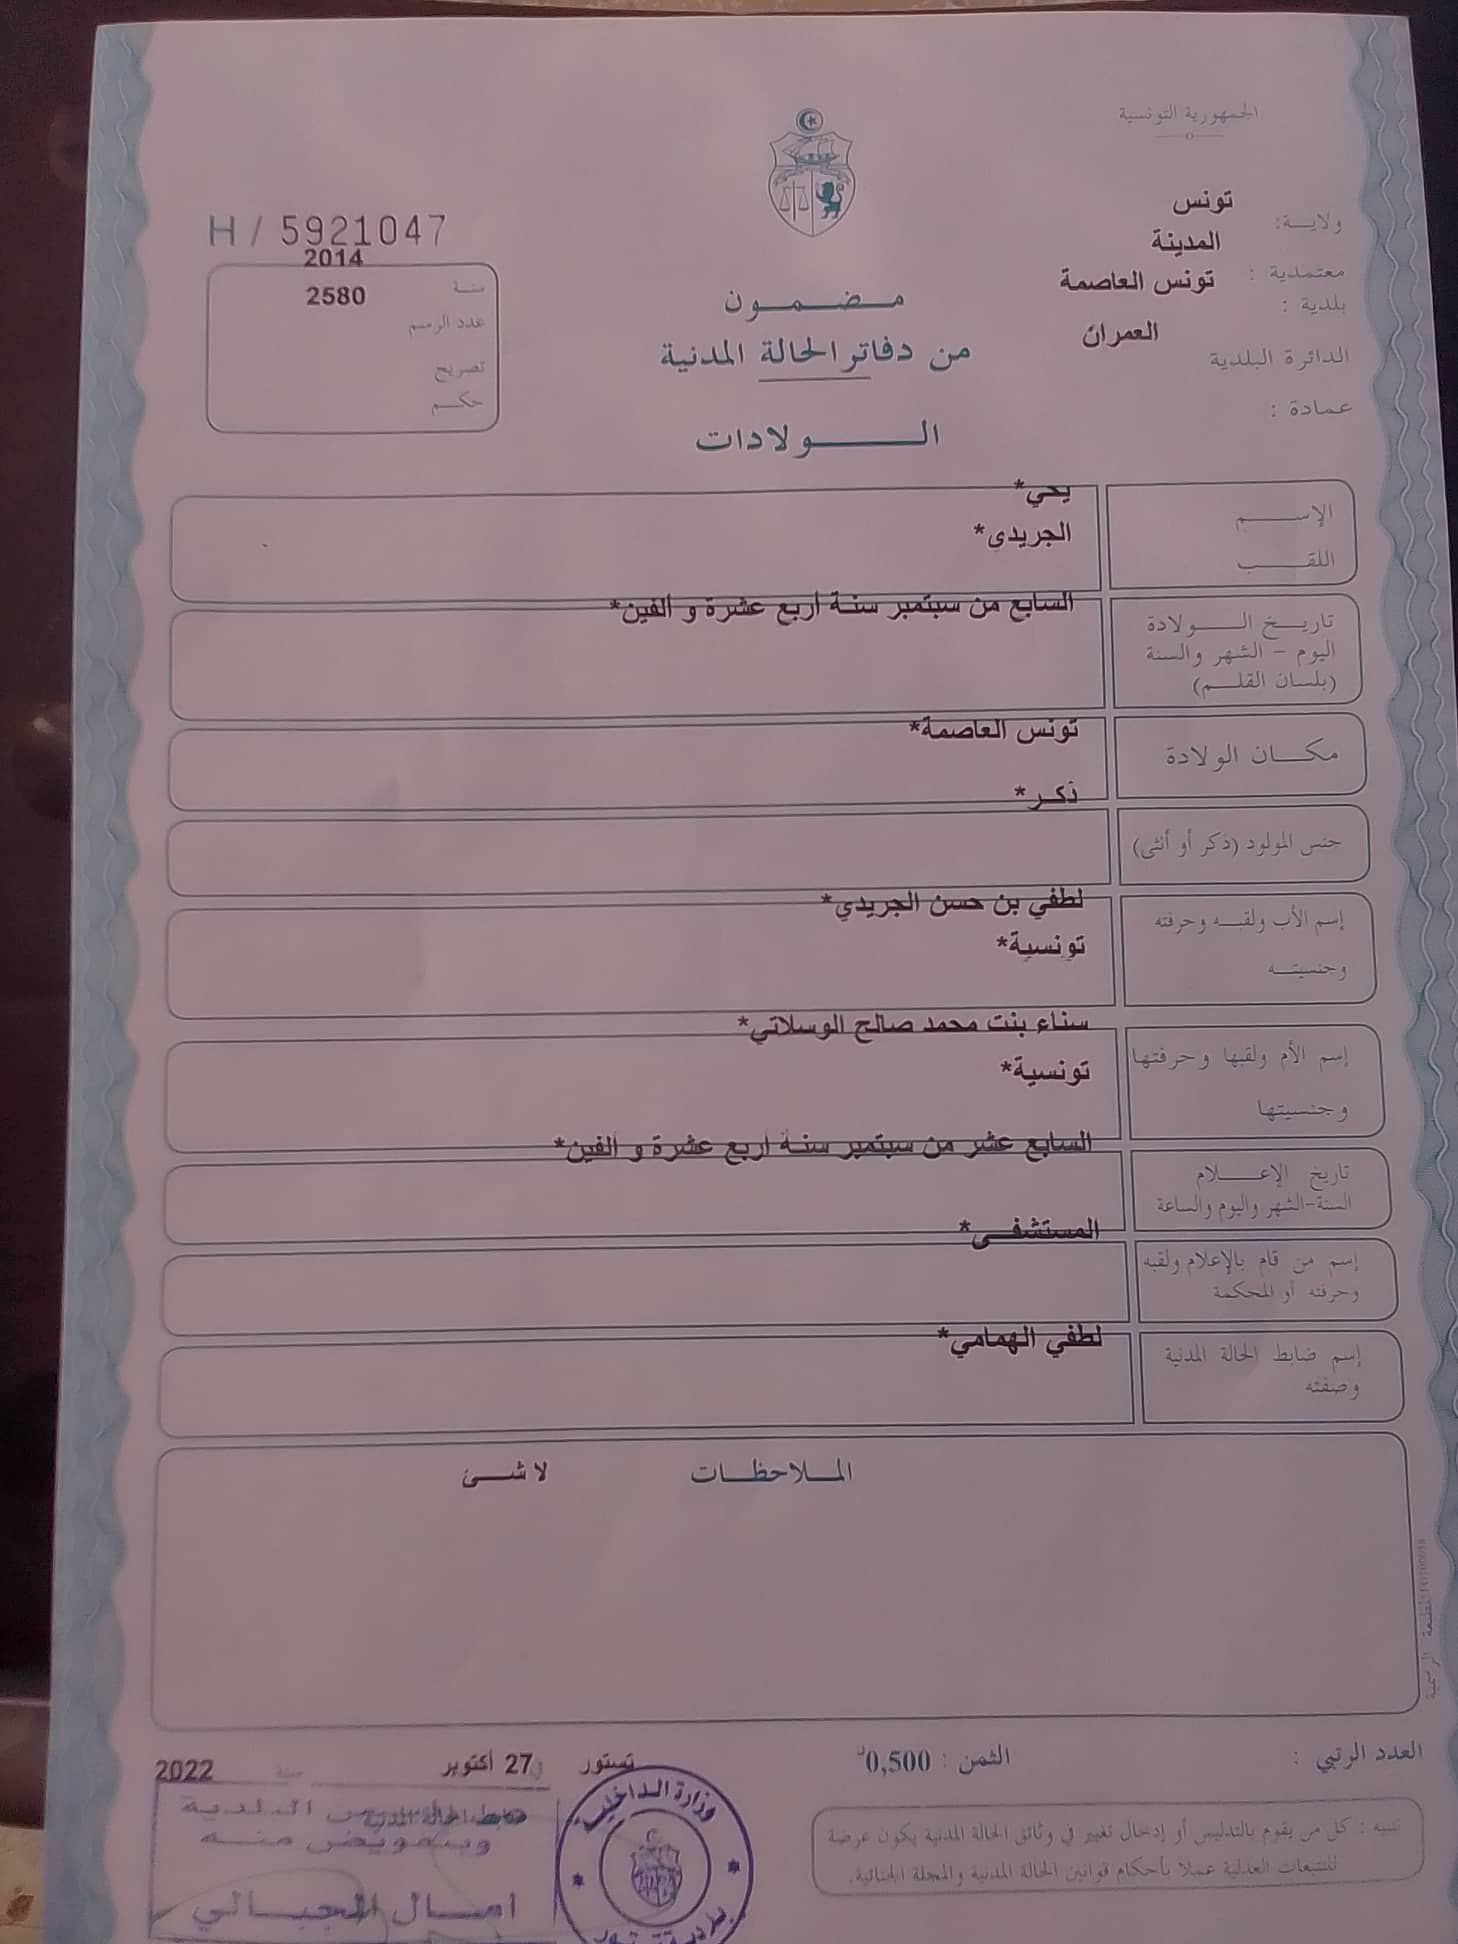 الجمهورية التونسية
ولايـــة: تونس
معتمدية : المدينة
بلدية : تونس العاصمة
الدائرة البلدية العمران
عمادة :
H / 5921047
سنـة 2014
عدد الرسم 2580
تصريح
حكـــم
مـــضـــمـــون
من دفاتر الحالة المدنية
الـــولادات
الإســـم يحي*
اللقـــب الجريدى*
تاريـــخ الـــولادة السابع من سبتمبر سنة اربع عشرة و الفين*
اليوم - الشهر والسنة
(بلسان القلـــم)
مكـــان الولادة تونس العاصمة*
جنس المولود (ذكر أو أنثى) ذكـر*
إسم الأب ولقبـــه وحرفته لطفي بن حسن الجريدي*
وجنسيتـــه تونسية*
إسم الأم ولقبها وحرفتها سناء بنت محمد صالح الوسلاتي*
وجنسيتها تونسية*
تاريخ الإعـــلام السابع عشر من سبتمبر سنة اربع عشرة و الفين*
السنة-الشهر واليوم والساعة
إسم من قام بالإعلام ولقبه المستشفـــى*
وحرفته أو المحكمة
إسم ضابط الحالة المدنية لطفي الهمامي*
وصفته
المـــلاحظـــات لا شـــئ
المطبعة الرسمية
العدد الرتبي :
الثمن : 0,500د
تستور 27 أكتوبر سنة 2022
تنبيه : كل من يقوم بالتدليس أو إدخال تغيير في وثائق الحالة المدنية يكون عرضة
للتتبعات العدلية عملا بأحكام قوانين الحالة المدنية والمجلة الجنائية.
ضابط الحالة المدنية
البلدية
وبتفويض منـــه
امـــال الجبـــالي
وزارة الداخلية